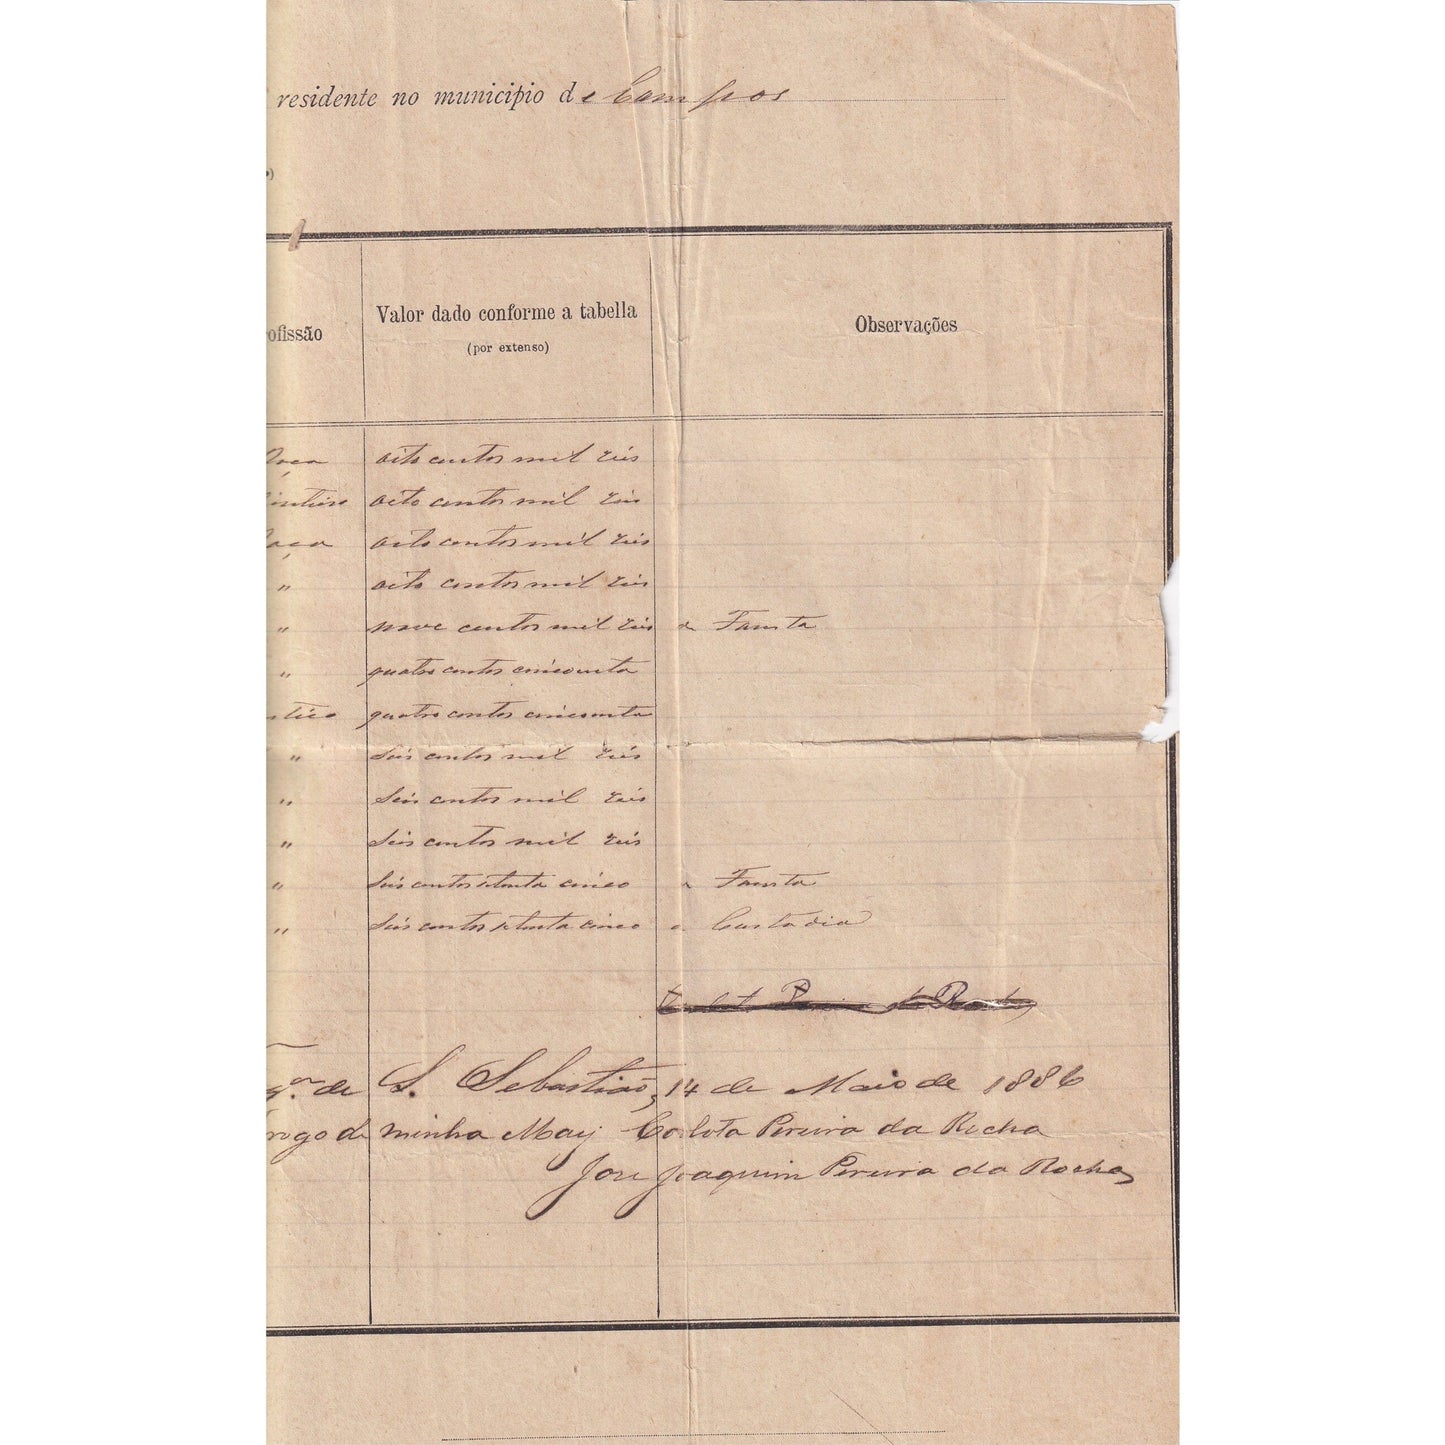 residente no municipio de Campos
ofissão
Valor dado conforme a tabella
(por extenso)
Observações
oito centos mil réis
oito centos mil réis
oito centos mil réis
" oito centos mil réis
" nove centos mil réis a Fausta
" quatro centos cincoenta
quatro centos cincoenta
" seis centos mil réis
" seis centos mil réis
" seis centos mil réis
" seis centos setenta cinco " Fausta
" seis centos setenta cinco a Custodia
de S. Sebastião, 14 de Maio de 1886
rogo de minha May Carlota Pereira da Rocha
José Joaquim Pereira da Rocha